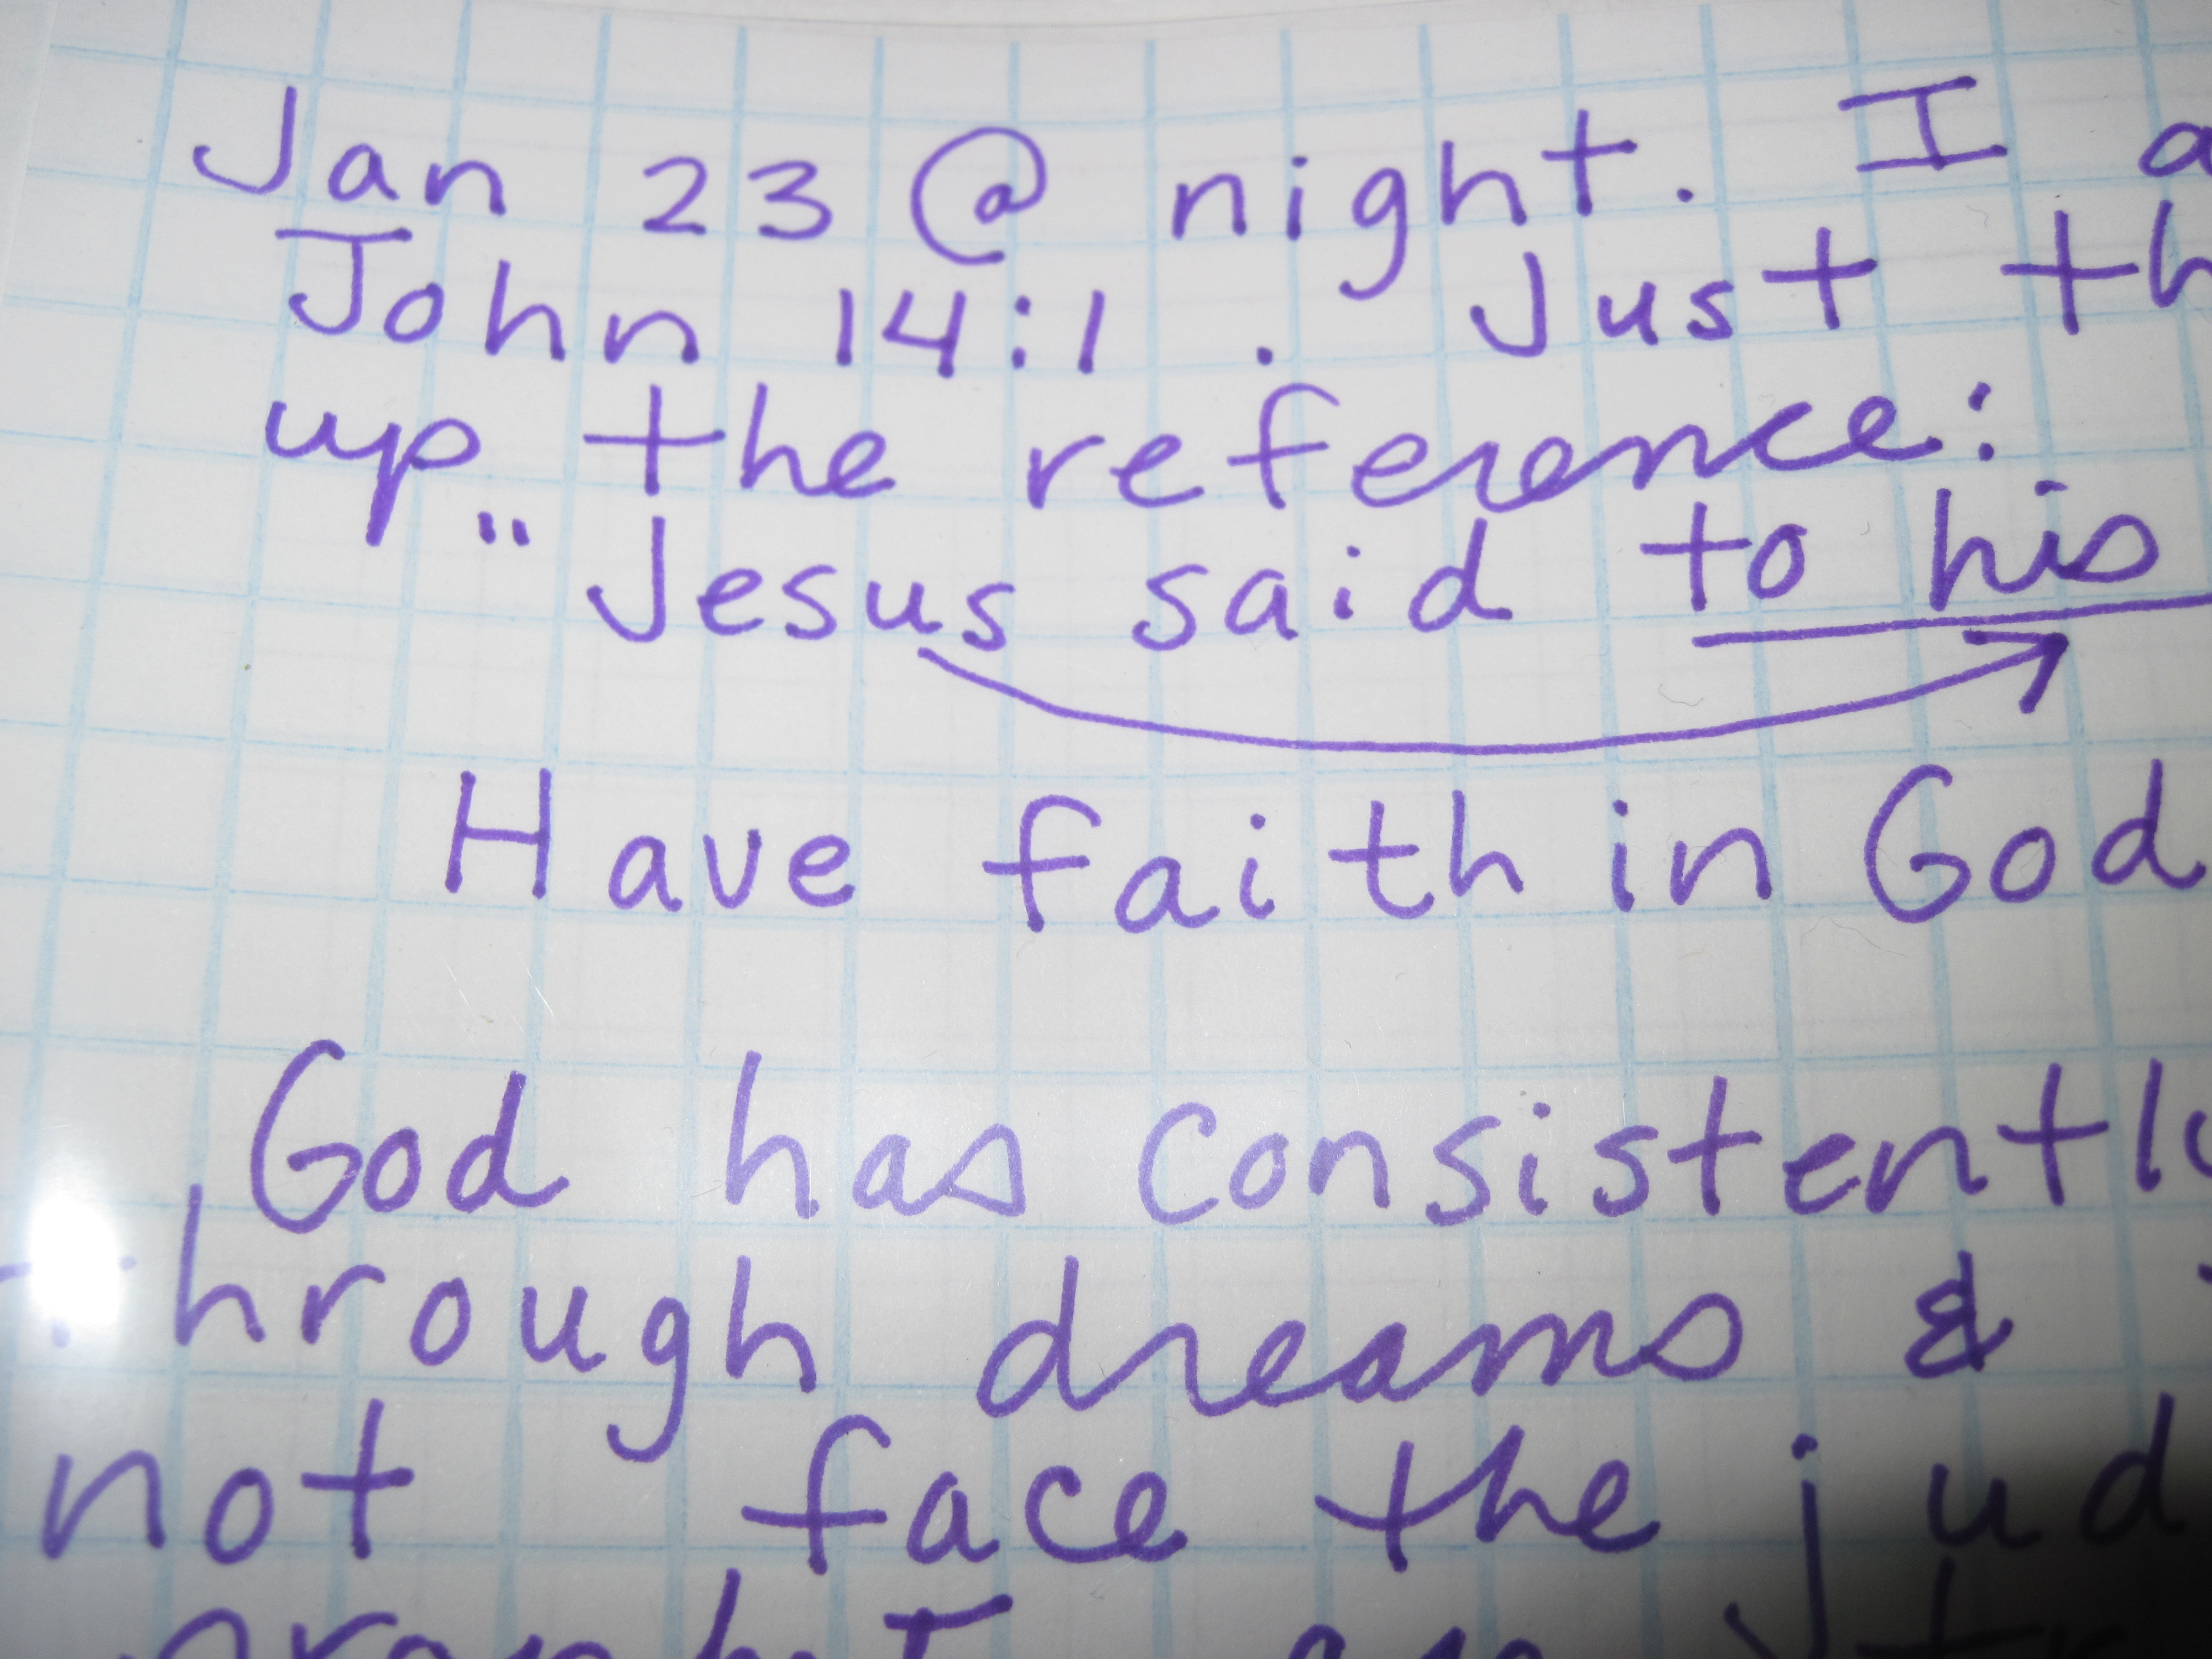 Jan 23 @ night. I a
John 14:1 . Just th
up the reference:
" Jesus said to his
Have faith in God
God has consistently
through dreams &
not face the jud